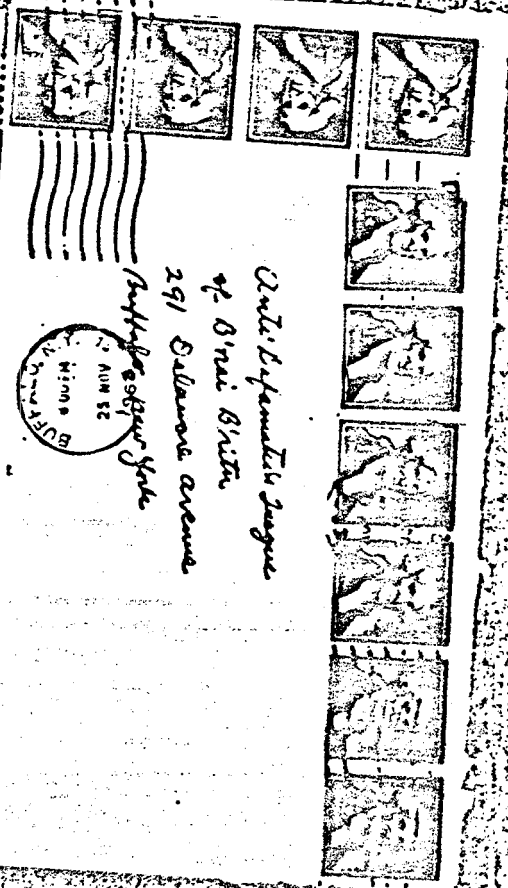 Anti Defamation League
of B'nai B'rith
291 Delaware Avenue
Buffalo New York
BUFFALO
N.Y.
23
1968